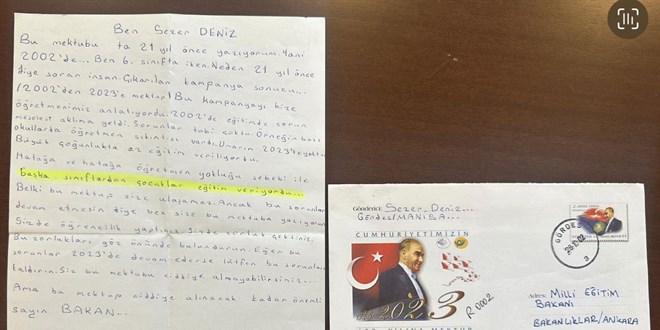 Ben Sezer DENİZ
Bu mektubu ta 21 yıl önce yazıyorum. Yani
2002'de... Ben 6. sınıfta iken. Neden 21 yıl önce
diye soran insan. Çıkarılan kampanya sonucu...
(2002'den 2023'e mektup) Bu kampanyayı bize
öğretmenimiz anlatıyordu. 2002'de eğitimde sorun
meselesi aklıma geldi. Sorunlar tabi çoktu. Örneğin bazı
okullarda öğretmen sıkıntısı vardı. Umarım 2023'te yoktur.
Büyük çoğunlukta az eğitim veriliyordu.
Hatağa ve hatağa öğretmen yokluğu sebebi ile
başka sınıflardan çocuklar eğitim veriyordu...
Belki bu mektup size ulaşamaz. Ancak bu sorunlar
devam etmesin diye ben size bu mektubu yazıyorum.
Sizde öğrencilik yaptınız. Sizde zorluk çektiniz.
Bu zorlukları göz önünde bulundurun. Eğer bu
sorunlar 2023'de devam ederse lütfen bu sorunları
kaldırın. Siz bu mektubu ciddiye almayabilirsiniz...
Ama bu mektup ciddiye alınacak kadar önemli
sayın BAKAN...
Gönderici: Sezer Deniz...
Gördes/MANİSA...
CUMHURİYETİMİZİN
2023
R.0002
100. YILINA MEKTUP
GÖRDES
a
Adres: Milli EĞİTİM
BAKANI
BAKANLIKLAR/ANKARA